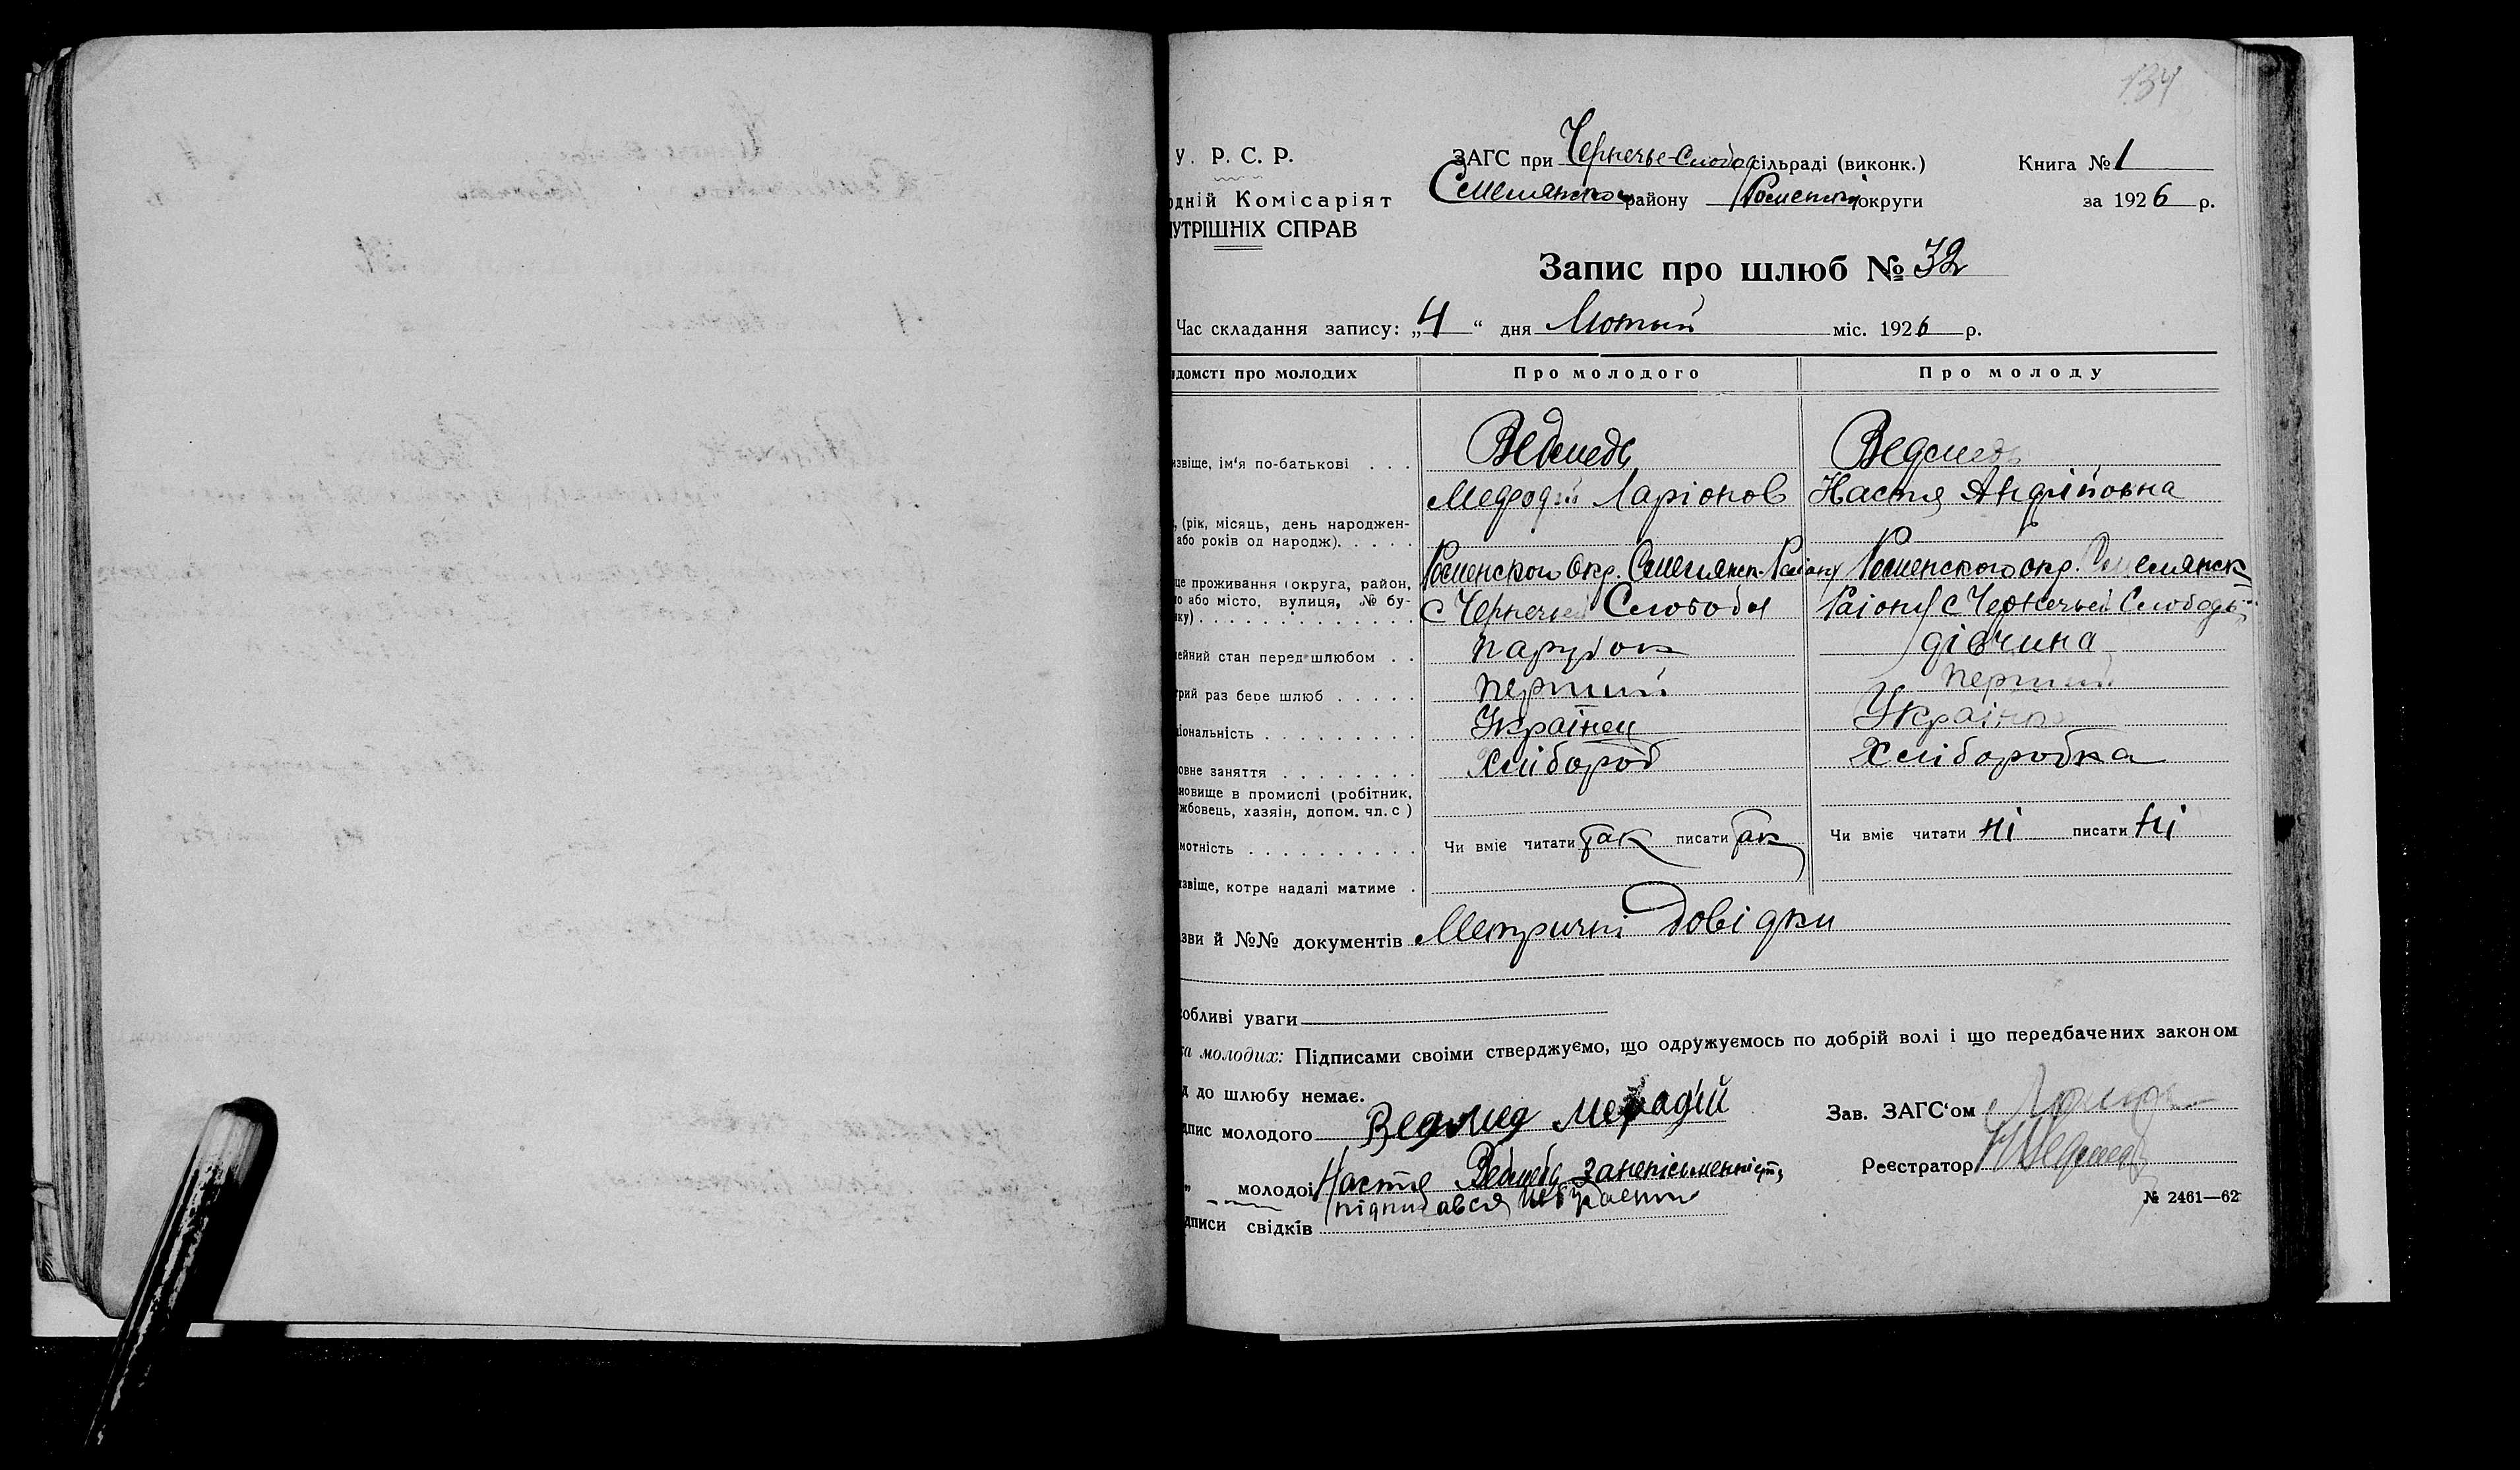 134
У. Р. С. Р.
ЗАГС при Чернечье-Слобод сільраді (виконк.)
Книга № 1
одній Комісаріят
Смелянского району Роменской округи
за 1926 р.
УТРІШНІХ СПРАВ
Запис про шлюб № 32
Час складання запису: „4“ дня Лютый міс. 1926 р.
домсті про молодих
Про молодого
Про молоду
Ведмедь
Ведмедь
звіще, ім'я по-батькові . . .
Мефодій Ларіонов
Настя Андрійовна
, (рік, місяць, день народжен-
або років од народж). . . . .
Роменского Окр. Смелянск. Району
Роменского окр. Смелянск
це проживання (округа, район,
о або місто, вулиця, № бу-
ку) . . . . . . . . . . . . .
с Чернечьей Слободы
Раіону с Чернечьей Слободы
ейний стан перед шлюбом . .
парубок
дівчина
трий раз бере шлюб . . . . .
перший
перший
іональність . . . . . . . . .
Українец
Українка
овне заняття . . . . . . . .
Хлібороб
Хліборобка
новище в промислі (робітник,
жбовець, хазяін, допом. чл. с )
мотність . . . . . . . . . .
Чи вміє читати так писати так
Чи вміє читати ні писати ні
звіще, котре надалі матиме .
зви й №№ документів Метричні довідки
обливі уваги
ка молодих: Підписами своіми стверджуємо, що одружуємось по добрій волі і що передбачених законом
д до шлюбу немає.
дпис молодого Ведмед Мефадій
Зав. ЗАГС'ом
„ молодоі Настя Ведмедь занепісьменність
підписався
Реєстратор
дписи свідків
№ 2461—62